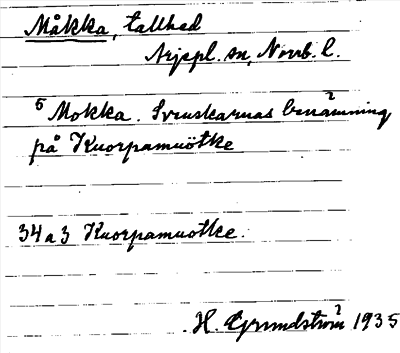 Måkka, tallhed
Arjepl. sn, Norrb. l.
5 Mokka. Svenskarnas benämning
på Kuorpamuotke
34 a 3 Kuorpamuotke.
H. Grundström 1935